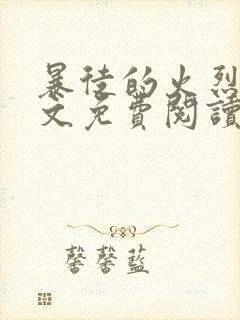 暴徒的火烈
文免費閱讀
馨馨藍